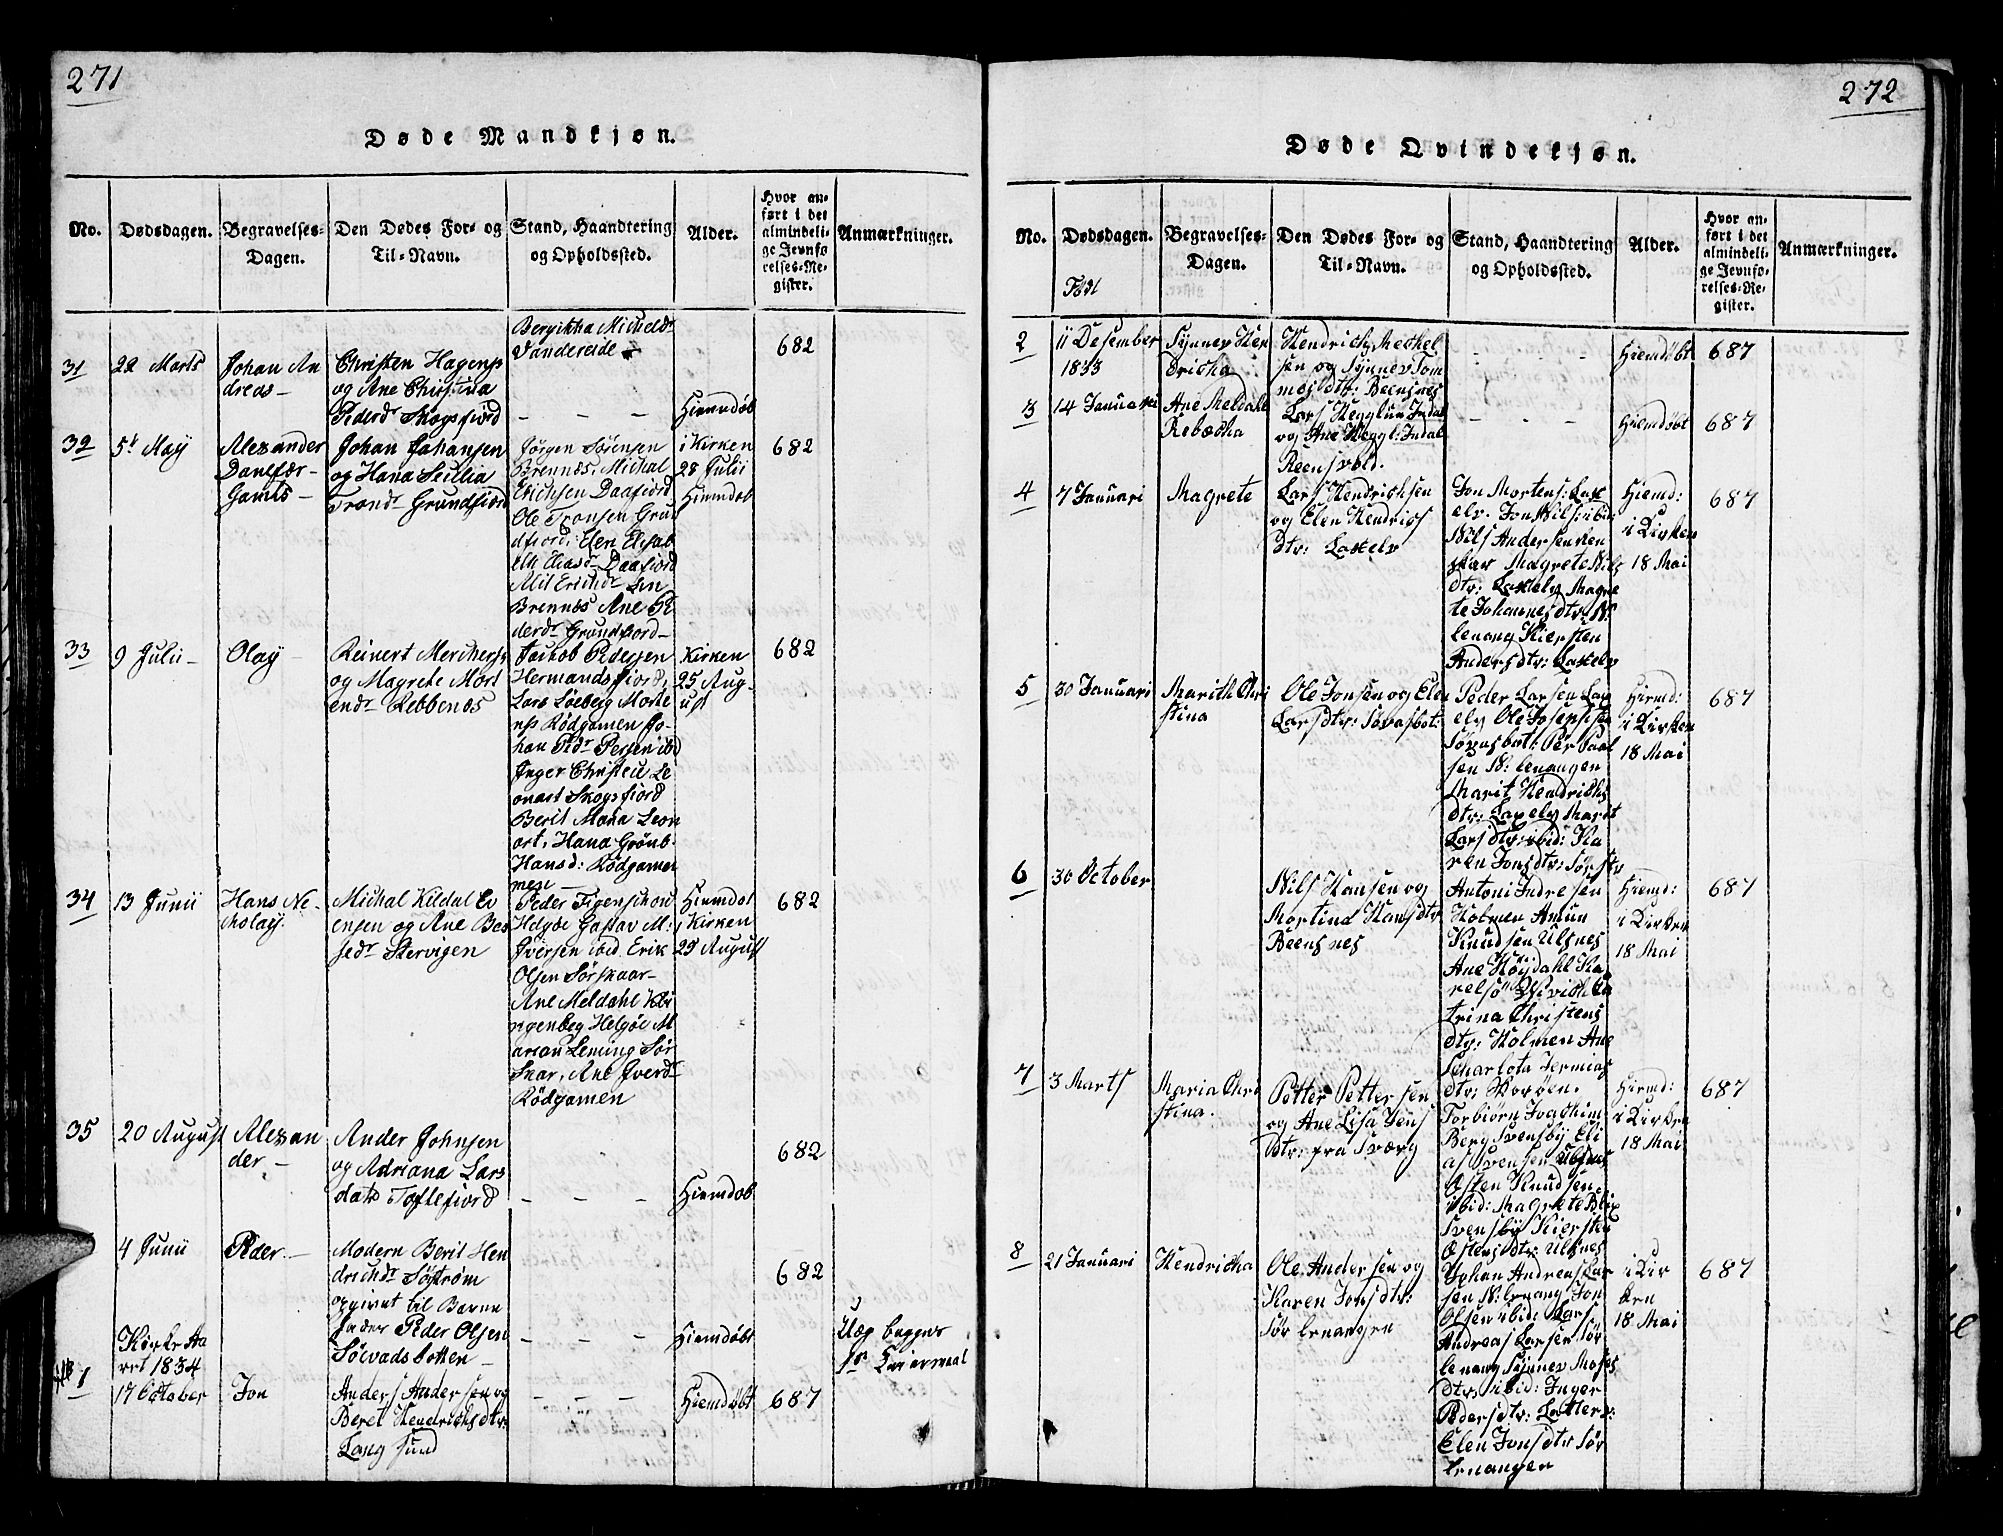 271
Døde Mandkjøn.
No.
Dødsdagen.
Begravelses-
Dagen.
Den Dødes For- og
Til-Navn.
Stand, Haandtering
og Opholdssted.
Alder.
Hvor an-
ført i det
almindeli-
ge Jevnfø-
relses-Re-
gister.
Anmærkninger.
Vandereide
31
22 Marts
Johan An
dreas
Christen Hagens
og Ane Christina
Pedersdr Skogsfiord
Hiemdøb
682
32
5t May
Alexander
Johan Johansen
og Hana Sicilia
Tronds Grundfiord
Jørgen Sørensen
Brennæs, Michal
Erichsen Daafiord
Ole Tronsen Grun
dfiord, Elen Elisab
eth Eliasd Daafiord
Brennæs Ane Pe
dersdr Grundfiord
i Kirken
28 Julii
Hiemdøb
682
33
9 Julii
Olay
Reinert
og Magrete Mort
ensdr Rebbenæs
Jackob Pedersen
Hermandsfiord,
Lars Løeberg Morte
ns Rødgamen Jo-
han
Inger Christen Le
onart Skogsfiord
Berit Maria Leon
art, Hana Grønb
Hansd: Rødgamen
Kirken
25 Aug-
ust
682
34
13 Junii
Hans Ne-
cholay.
Michal Kildal Ev
ensen og Ane
Skervigen
Peder Figenschou
Helgøe Gustav M:
Iversen ibid. Erik
Olsen Sørskaar
Ane Meldahl Kli
ngenbeg Helgøe M
arian Leming Sør
Skar, Ane Iverd
Rødgamen
Hiemdøt
i Kirken
29 August
682
35
20 August
Alexan
der
Ander Johnsen
og Adriana Lars
datr Toftefiord
Hiemdøb
682
4 Junii
Peder
Modern Berit Hen
drichdr Søstrøm
opgivet til Barne
fader Peder Olsen
Sølvadsbotten
Hiemdøbt
682
Kirke Aa
ret 1834
1
17 October
Jon
Anders Andersen og
Beret Hendrichsdtr:
Lang sund
Hiemdøbt
687
272
Døde Qvindekjøn.
No.
Dødsdagen.
Født
Begravelses-
Dagen.
Den Dødes For- og
Til-Navn.
Stand, Haandtering
og Opholdssted.
Alder.
Hvor an-
ført i det
almindeli-
ge Jevnfø-
relses-Re-
gister.
Anmærkninger.
2
11 Desember
1833
Synnev Hen
dricha
Hendrich Mechel
sen og Synnev Tom
mesdtr: Beensnes
Hiemdøbt
687
3
14 Januari
Ane Meldahl
Rebæcha
Lars Heggelun Indal
og Ane Heggl: Indal
Reensvold.
Hiemdøbt
687
4
7 Januari
Magrete
Lars Hendrichsen
og Elen Hendrics
dtr: Laxelv
Jon Mortens: Lax
elv. Jon Nils: ibid
Nils Andersen Ren
skar Magrete Nils
dtr: Laxelv Magre
te Johannesdtr: N:
lenang Kiersten
Andersdtr: Laxelv
Hiemd:
i Kirken
18 Mai
687
5
30 Januari
Marith Chri
stina
Ole Jonsen og Elen
Larsdtr: Søvasbot:
Peder Larsen Lax
elv Ole Josephsen
Søvasbot: Per Paul
sen N: lenangen
Marit Hendrichs
dtr: Laxelv Marit
Larsdtr: ibid: Ka
ren Jonsdtr: Sørstr
Hiemd:
i Kirken
18 Mai
687
6
30 October
Nils Hansen og
Martina Hansdtr
Beensnes
Antoni Indresen
Holmen Amun
Knudsen Ulsnes
Ane Høgdahl Ka
relsø Ulrich Ca
trina Christens
dtr: Holmen Ane
Scharlota Jermias
dtr: Skorøen.
Hiemd:
i Kirken
18 Mai
687
7
3 Marts
Maria Chri
stina.
Petter Pettersen
og Ane Lisa Jens
dtr: fra Sværg
Torbiørn Joachim
Berg Svensby Eli
as Svensen Ulsnes
Østen Knudsen
ibid: Magrete Blix
Svensby Kiersten
Østensdtr: Ulsnes
Hiemd:
i Kirken
18 Mai
687
8
21 Januari
Hendricha
Ole Andersen og
Karen Jonsdtr:
Sør lenangen
Johan Andreas Lar
sen N: lenang Jon
Olsen ibid: Lars
Andreas Larsen Sør
lenang Synnev Moses
dtr: ibid: Inger
Pedersdtr:
Elen Jonsdtr Sør
lenangen
i Kir
ken
18 Mai
687